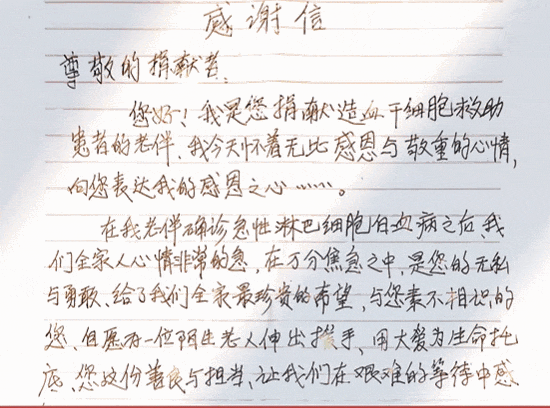 感谢信
尊敬的捐献者:
您好!我是您捐献造血干细胞救助
患者的老伴、我今天怀着无比感恩与敬重的心情,
向您表达我的感恩之心……。
在我老伴确诊急性淋巴细胞白血病之后、我
们全家人心情非常的急,在万分焦急之中,是您的无私
与勇敢、给了我们全家最珍贵的希望,与您素不相识的
您、自愿为一位陌生老人伸出援手、用大爱为生命托
底、您这份善良与担当、让我们在艰难的等待中感